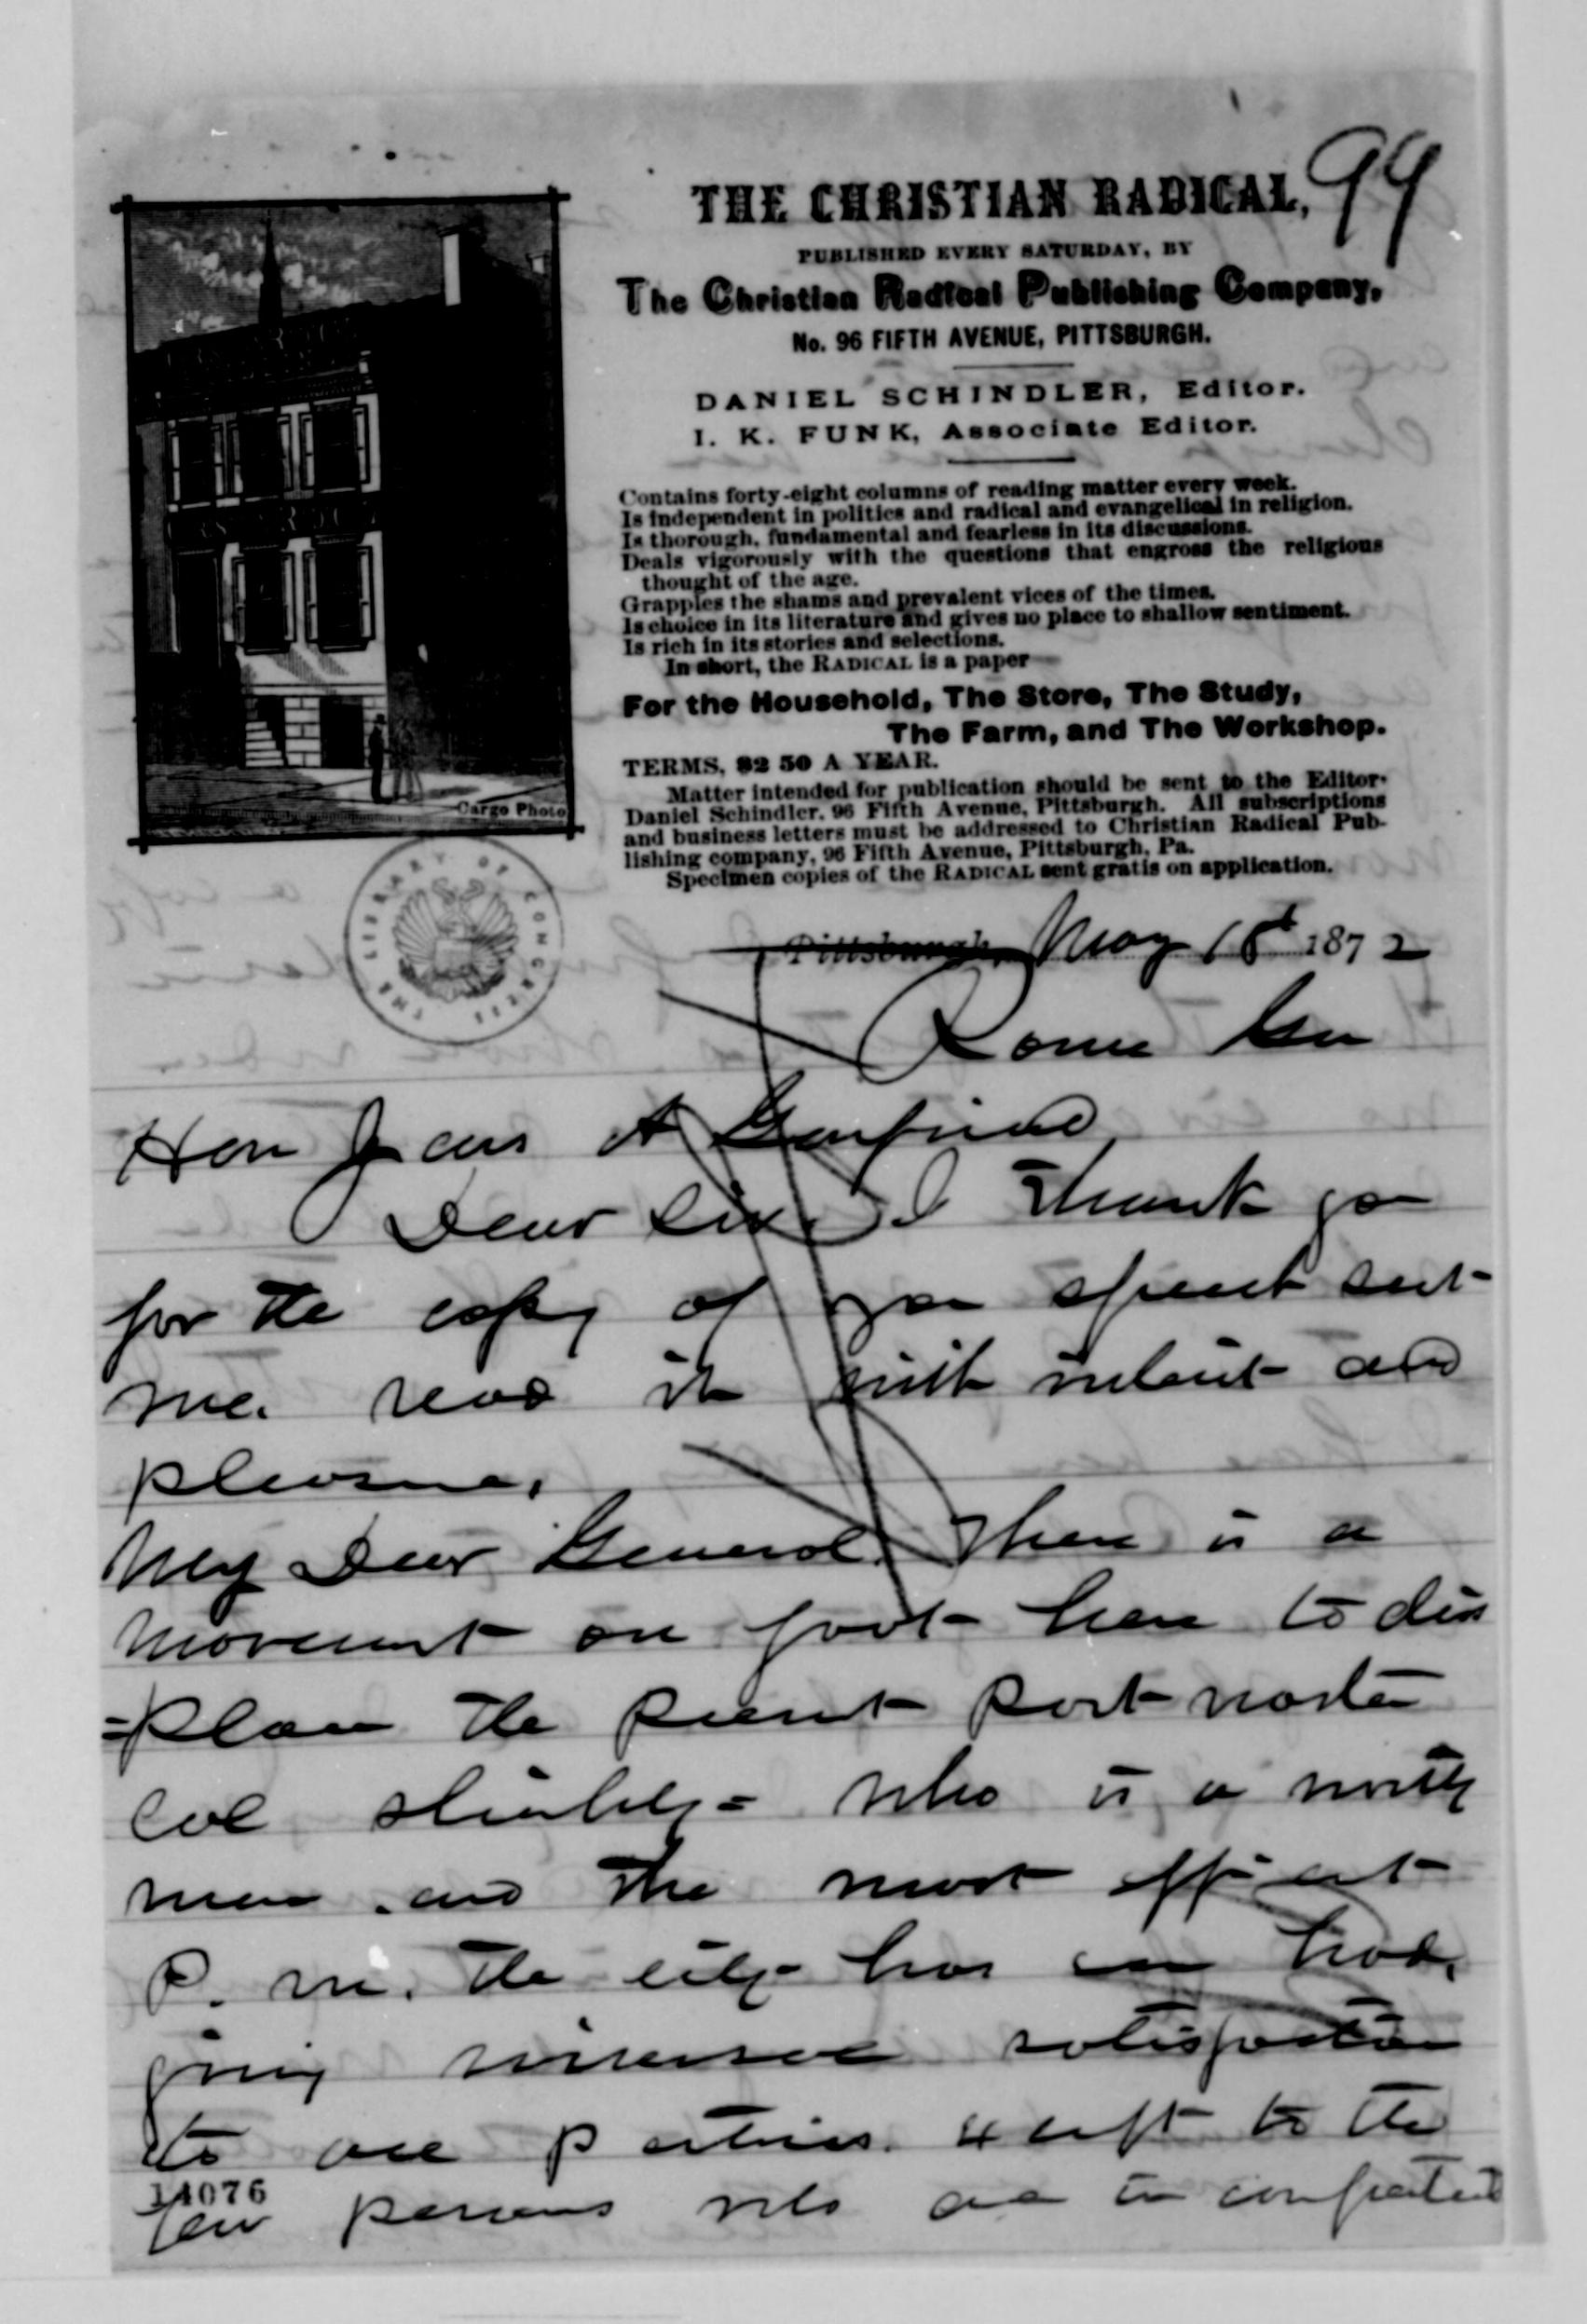 99
THE CHRISTIAN RADICAL,
PUBLISHED EVERY SATURDAY, BY
The Christian Radical Publishing Company,
No. 96 FIFTH AVENUE, PITTSBURGH.
DANIEL SCHINDLER, Editor.
I. K. FUNK, Associate Editor.
Contains forty-eight columns of reading matter every week.
Is independent in politics and radical and evangelical in religion.
Is thorough, fundamental and fearless in its discussions.
Deals vigorously with the questions that engross the religious
thought of the age.
Grapples the shams and prevalent vices of the times.
Is choice in its literature and gives no place to shallow sentiment.
Is rich in its stories and selections.
In short, the RADICAL is a paper
For the Household, The Store, The Study,
The Farm, and The Workshop.
TERMS, $2 50 A YEAR.
Matter intended for publication should be sent to the Editor-
Daniel Schindler, 96 Fifth Avenue, Pittsburgh. All subscriptions
and business letters must be addressed to Christian Radical Pub-
lishing company, 96 Fifth Avenue, Pittsburgh, Pa.
Specimen copies of the RADICAL sent gratis on application.
Cargo Photo
THE LIBRARY OF CONGRESS
Pittsburgh, May 1872
Rome
Hon Jas A Garfield
Dear Sir I Thank you
for the copy of your speech sent
me. read it with interest and
pleasure.
My Dear General. There is a
movement on foot here to dis
=place the present post master
Col who is a worthy
man and the most efficient
P. M. the city has ever had.
giving universal satisfaction
to all parties. except to the
few persons who are
14076